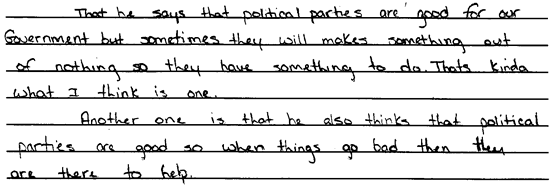 That he says that political parties are good for our
Government but sometimes they will makes something out
of nothing so they have something to do. Thats kinda
what I think is one.
Another one is that he also thinks that political
parties are good so when things go bad then they
are there to help.